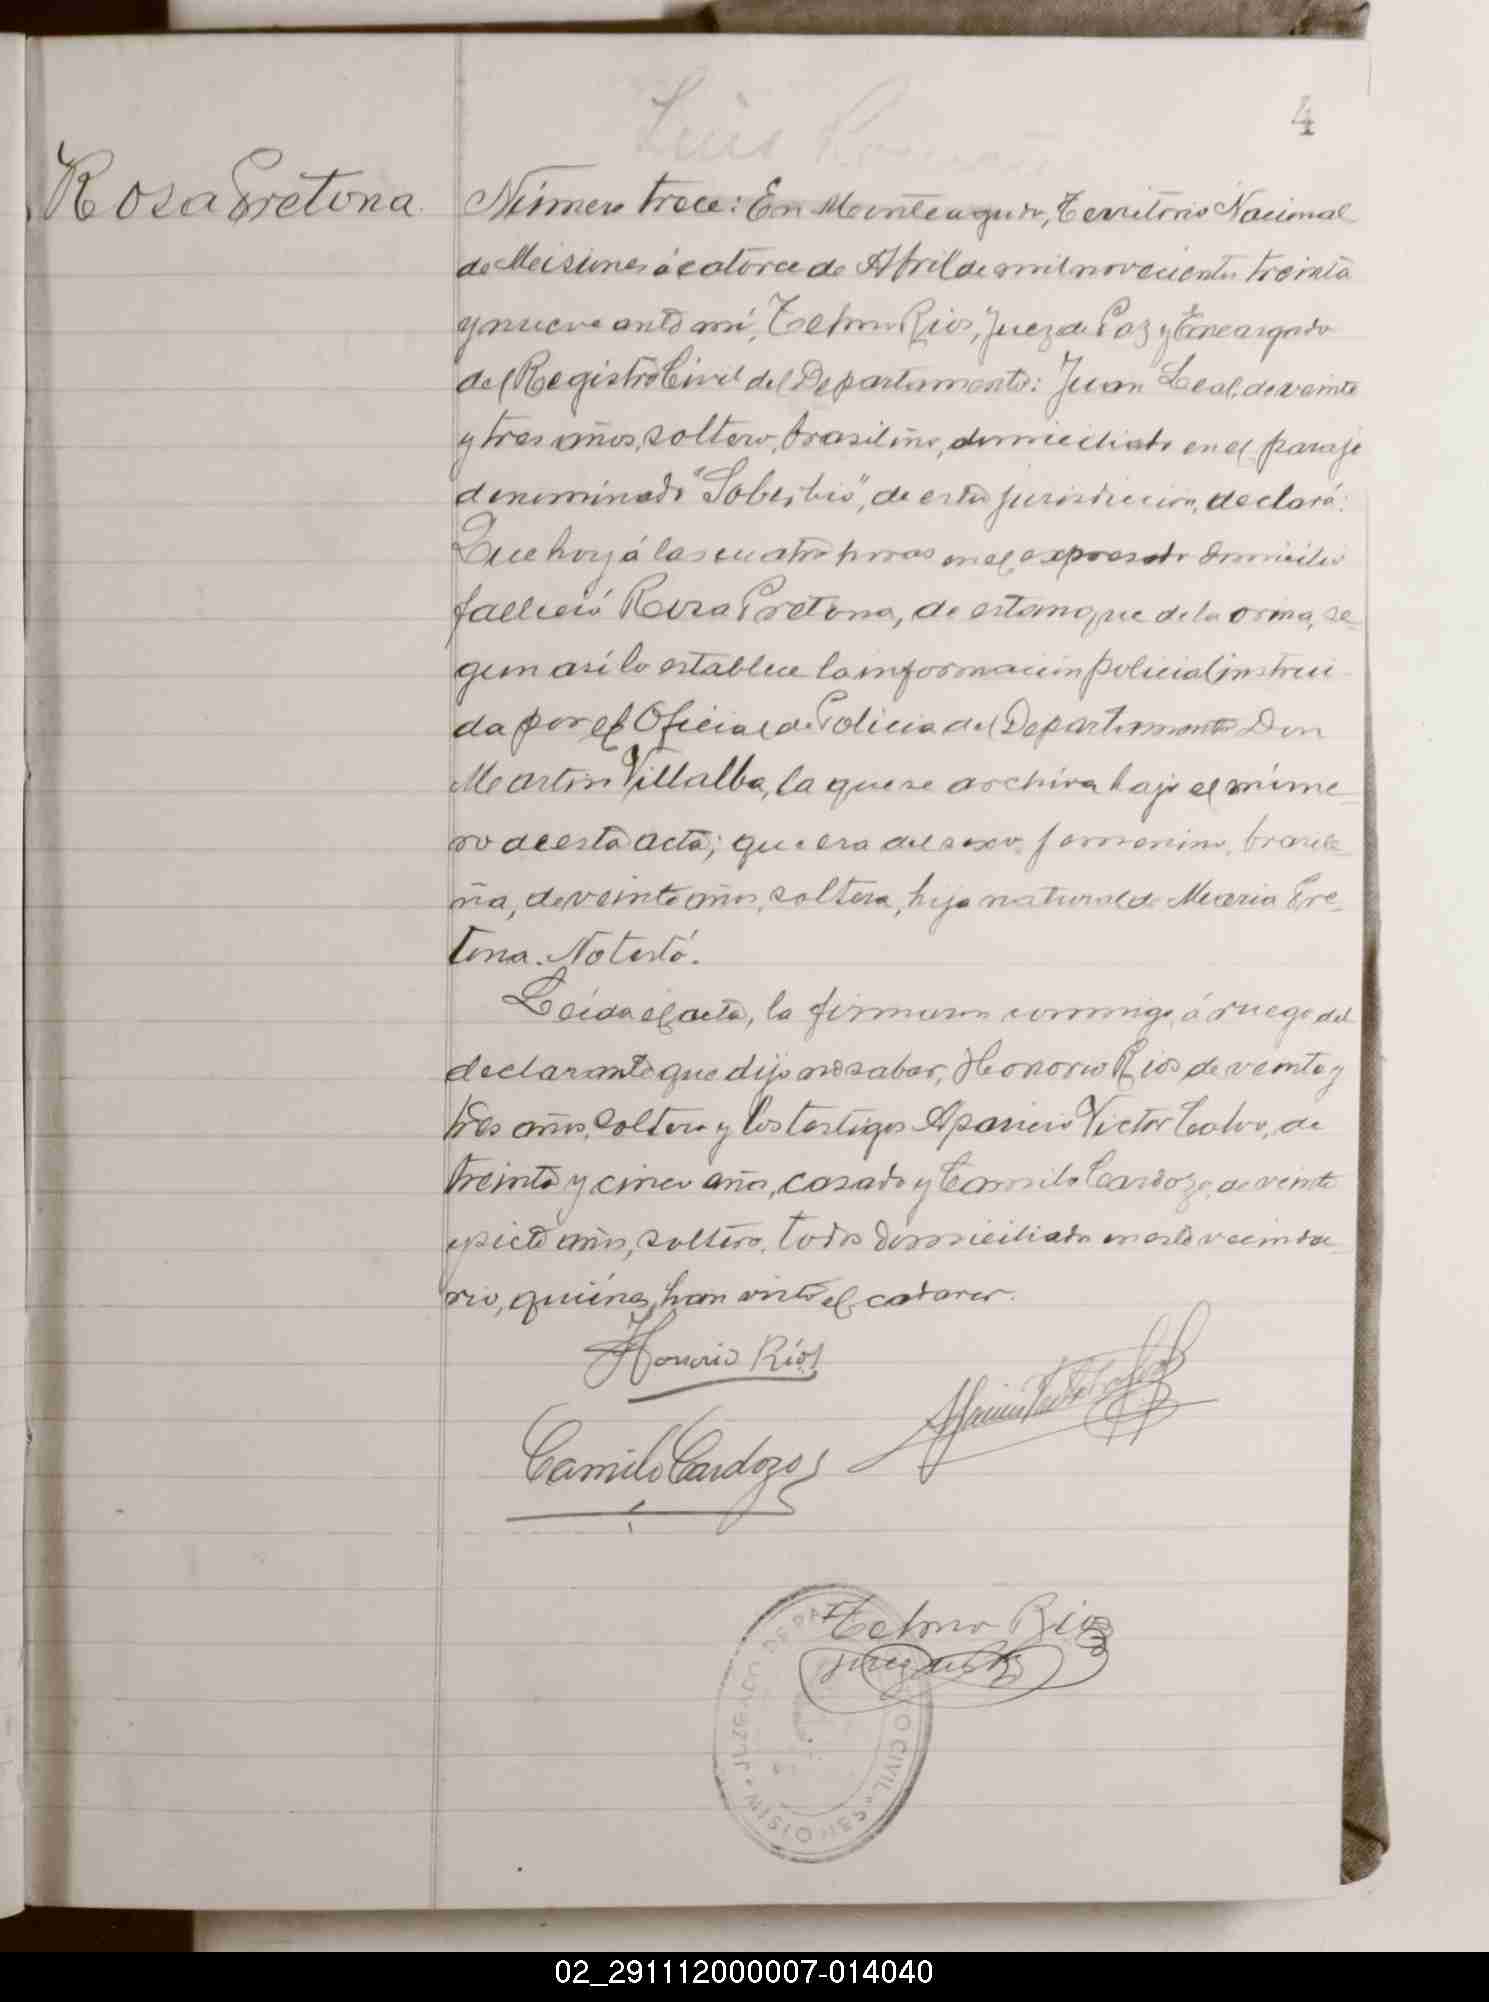 4
Rosa Pretona.
Número trece: En Monteagudo, Territorio Nacional
de Misiones á catorce de Abril de mil novecientos treinta
y nueve ante mí, Telmo Rios, Juez de Paz y Encargado
del Registro Civil del Departamento: Juan Leal, de veinte
y tres años, soltero, brasileño, domiciliado en el paraje
denominado "Soberbio", de esta jurisdiccion, declaró:
Que hoy á las cuatro horas en el expresado domicilio
falleció Rosa Pretona, de estanque de la orina, se-
gun así lo establece la informacion policial instrui-
da por el Oficial de Policia del Departamento Don
Martin Villalba, la que se archiva bajo el núme-
ro de esta acta; que era del sexo femenino, brasile-
ña, de veinte años, soltera, hija natural de Maria Pre-
tona. No testó.
Leída el acta, la firmaron conmigo, á ruego del
declarante que dijo no saber, Honorio Rios de veinte y
tres años, soltero y los testigos Aparicio Victor Calvo, de
treinta y cinco años, casado y Camilo Cardozo, de veinte
y siete años, soltero, todos domiciliados en este vecinda-
rio, quiénes han visto el cadaver.
Honorio Ríos
Camilo Cardozo
Telmo Rios
Juez de Paz
JUZGADO DE PAZ
O CIVIL
MISIONES
02_291112000007-014040